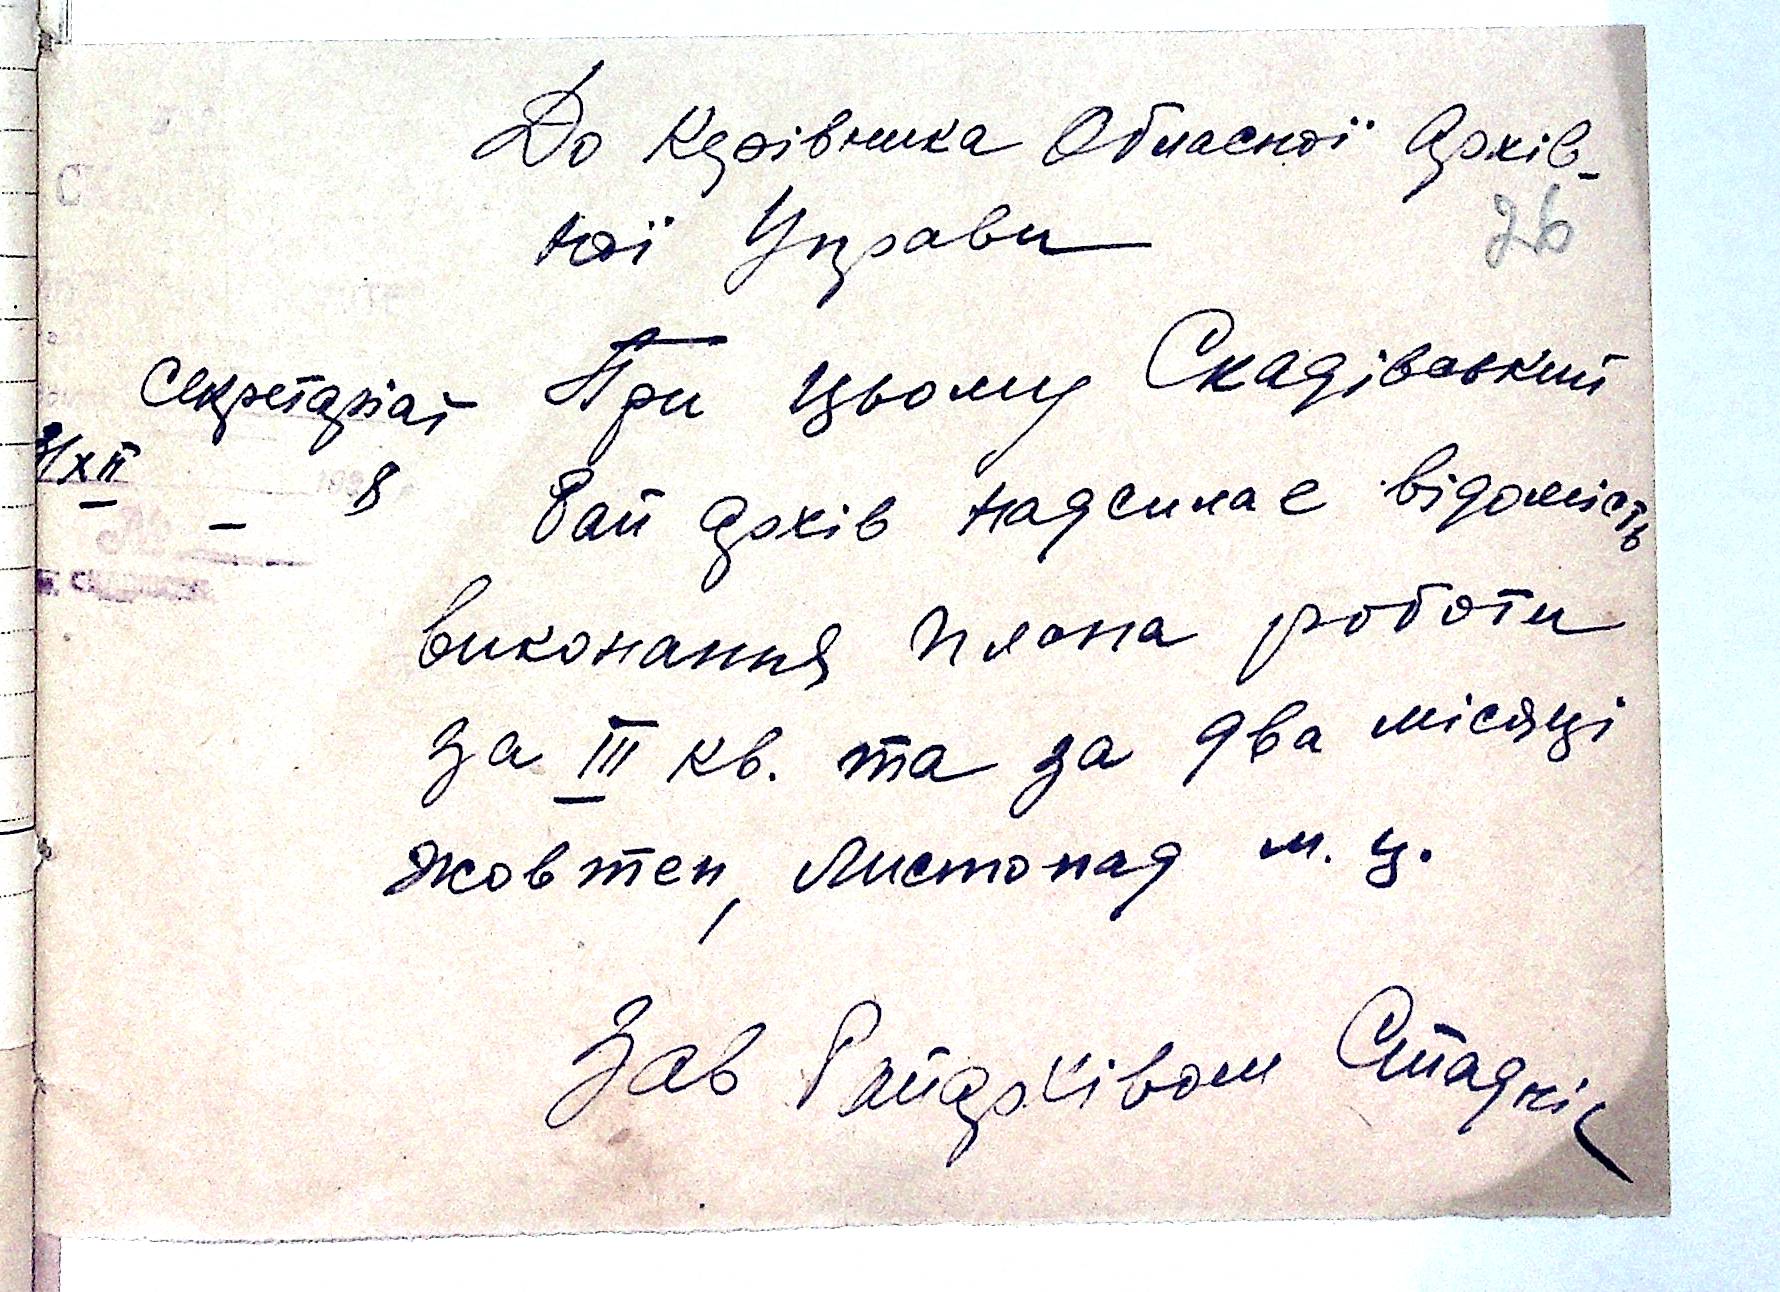 До Керівника Обласної Архів-
ної Управи
26
При цьому Скадівський
Секретаріат
Рай Архів надсилає відомість
/XII
виконання плана роботи
за III кв. та за два місяці
жовтен, листопад м. ц.
Зав Райархівом